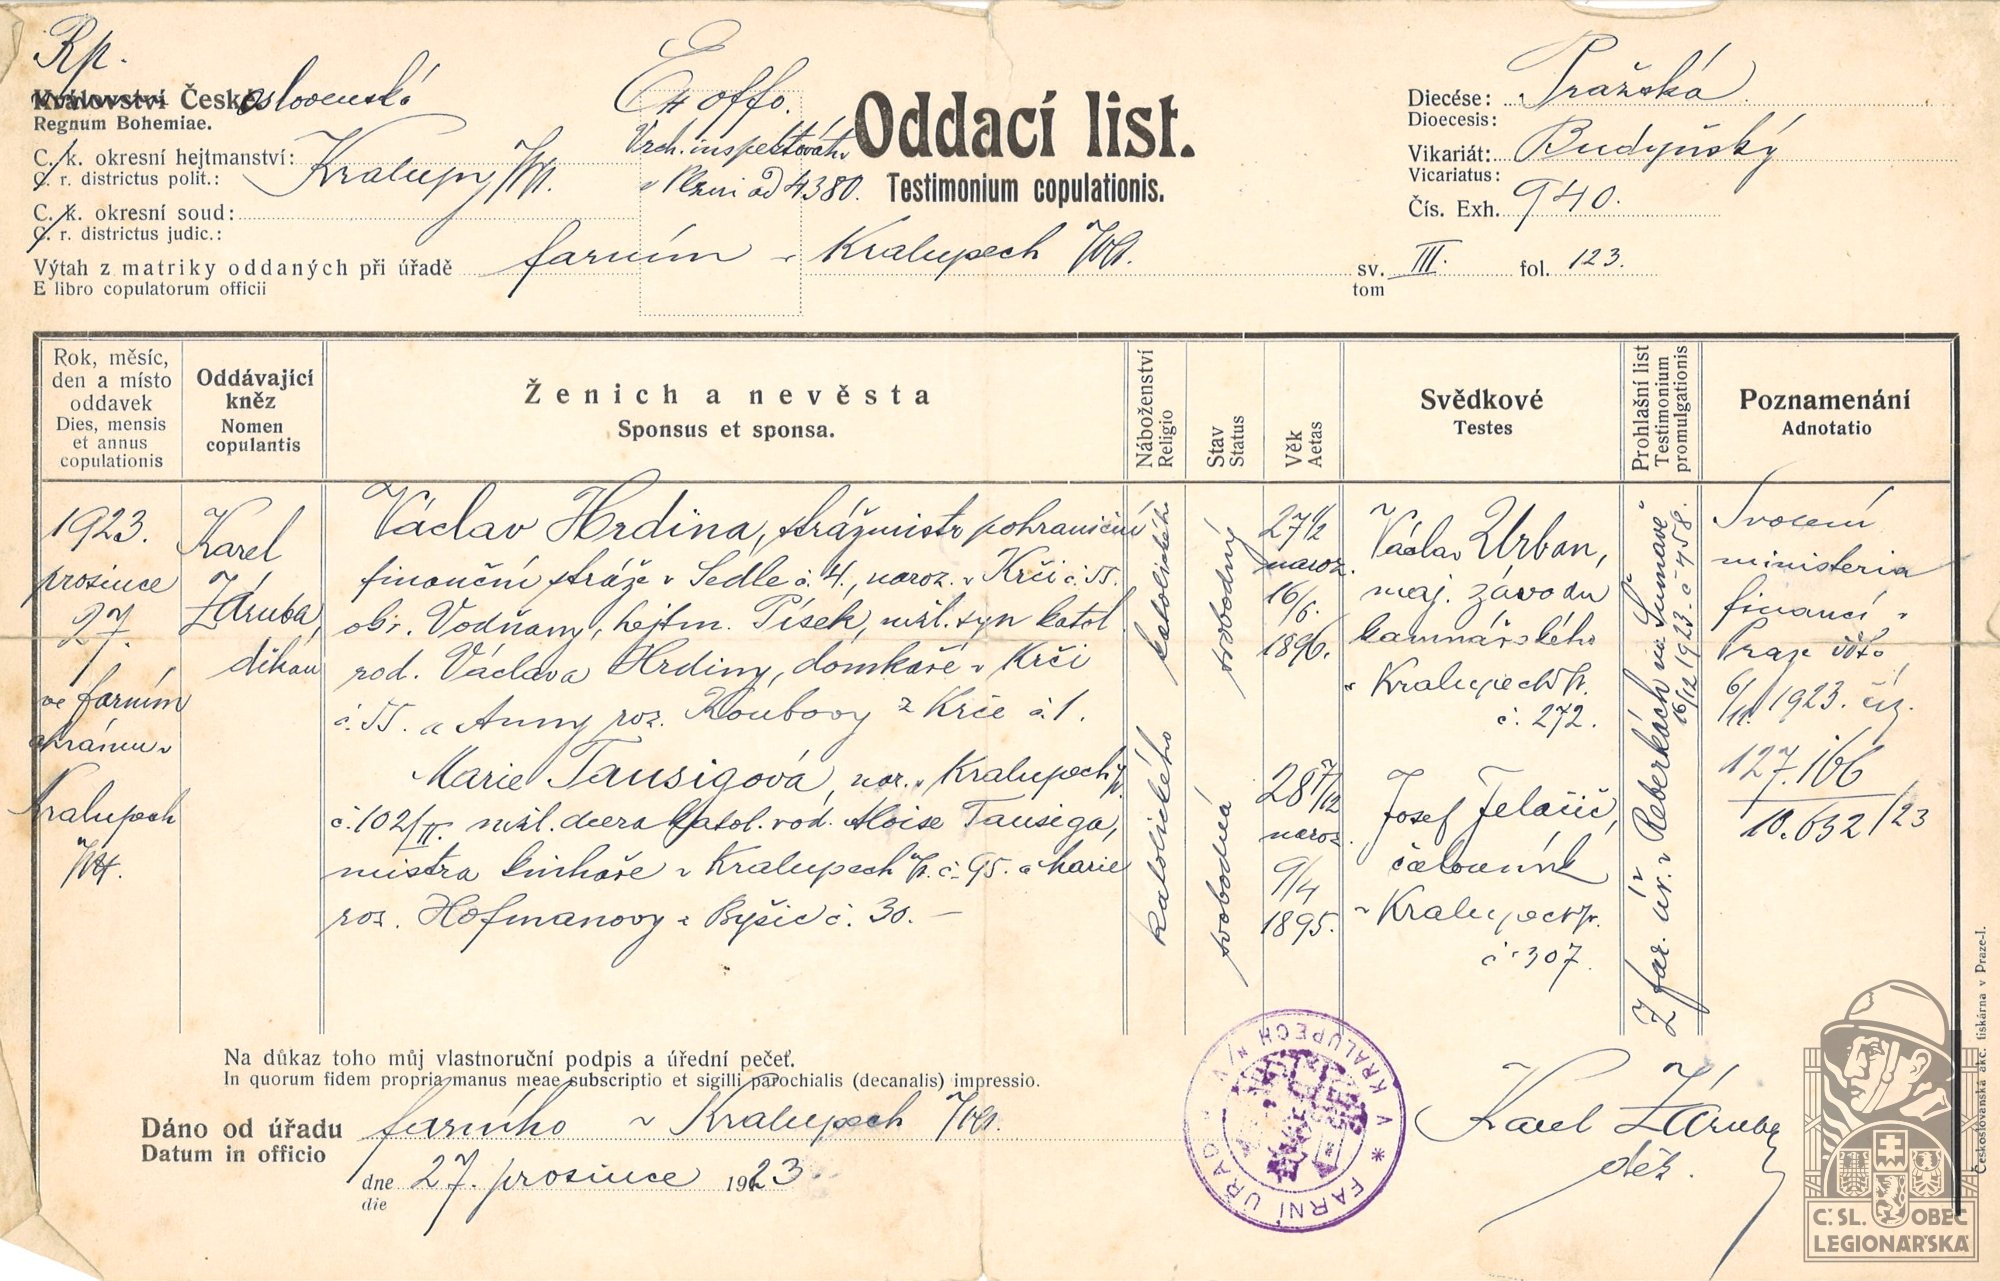 Rp.
Království Československá
Regnum Bohemiae.
C. k. okresní hejtmanství: Kralupy n/Vlt.
C. r. districtus polit.:
C. k. okresní soud:
C. r. districtus judic.:
Výtah z matriky oddaných při úřadě farním v Kralupech n/Vlt.
E libro copulatorum officii
Ex offo.
Vrch. inspektorátu
v Plzni ad 4380.
Oddací list.
Testimonium copulationis.
Diecése: Pražská
Dioecesis:
Vikariát: Budyňský
Vicariatus:
Čís. Exh. 940.
sv. III. fol. 123.
tom
Rok, měsíc,
den a místo
oddavek
Dies, mensis
et annus
copulationis
Oddávající
kněz
Nomen
copulantis
Ženich a nevěsta
Sponsus et sponsa.
Náboženství
Religio
Stav
Status
Věk
Aetas
Svědkové
Testes
Prohlašní list
Testimonium
promulgationis
Poznamenání
Adnotatio
1923.
prosince
27.
ve farním
chrámu v
Kralupech
n/Vlt.
Karel
Záruba,
děkan
Václav Hrdina, strážmistr pohraniční
finanční stráže v Sedle č. 4., naroz. v Krči č. 55.
okr. Vodňany, hejtm. Písek, mžl. syn katol.
rod. Václava Hrdiny, domkáře v Krči
č. 55. a Anny roz. Koubovy z Krče č. 1.
Marie Tausigová, nar. v Kralupech n/V.
č. 102/II. mžl. dcera katol. rod. Aloise Tausiga,
mistra knihaře v Kralupech n/V. č. 95. a Marie
roz. Hofmanovy z Byšic č. 30. —
katolického
katolického
svobodný
svobodná
27 1/2
naroz.
16/6.
1896.
28 7/12
naroz.
9/4
1895.
Václav Urban,
maj. závodu
kamnářského
v Kralupech n/V.
č. 272.
Josef
čalouník
v Kralupech n/V.
č. 307.
Z far. úř. v Reberkách na Šumavě
16/12 1923. č 458.
Svolení
ministeria
financí v
Praze
6/11. 1923. čís.
127.166
10.632/23
Na důkaz toho můj vlastnoruční podpis a úřední pečeť.
In quorum fidem propria manus meae subscriptio et sigilli parochialis (decanalis) impressio.
Dáno od úřadu farního v Kralupech n/Vlt.
Datum in officio
dne 27. prosince 1923
die
* FARNÍ ÚŘAD * V KRALUPECH N/V.
Karel Záruba
děk.
Československá akc. tiskárna v Praze-I.
Č. SL. OBEC
LEGIONÁŘSKÁ